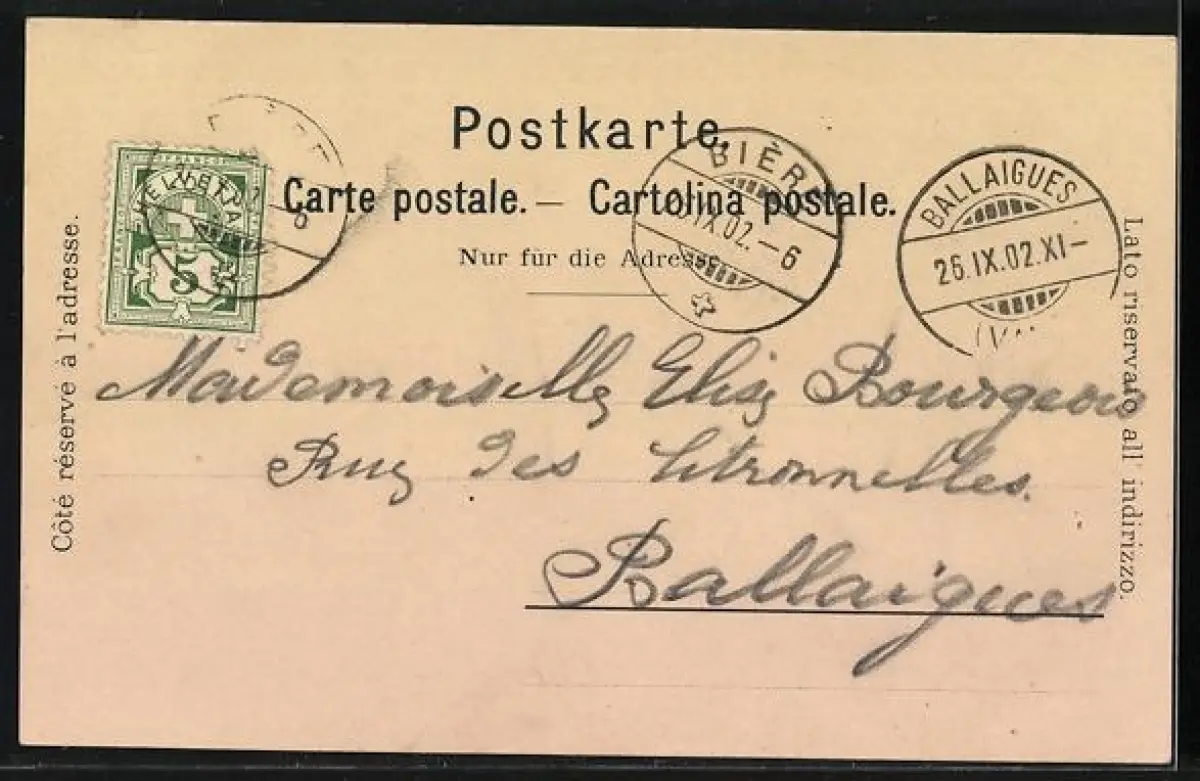 Postkarte.
Carte postale. — Cartolina postale.
Nur für die Adresse
Côté réservé à l'adresse.
Lato riservato all' indirizzo.
FRANCO
HELVETIA
5
6
BIÈRE
IX.02.–6
BALLAIGUES
26.IX.02.XI–
Mademoiselle Elise Bourgeois
Rue des Citronnelles.
Ballaigues